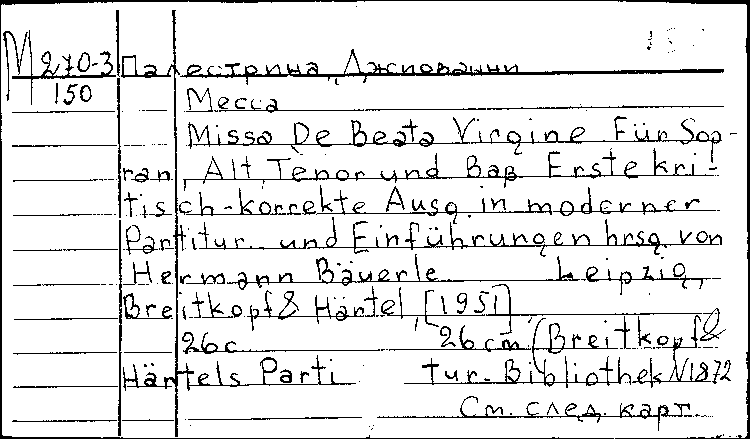 М 270-3 Палестрина, Джиованни
150
Месса
Missa De Beata Virgine Für Sop-
ran, Alt, Tenor und Baß Erste kri-
tisch-korrekte Ausg. in moderner
Partitur und Einführungen hrsg. von
Hermann Bäuerle Leipzig,
Breitkopf & Härtel, [1951]
26 с 26 cm (Breitkopf &
Härtels Parti tur-Bibliothek N1872
См. след. карт.